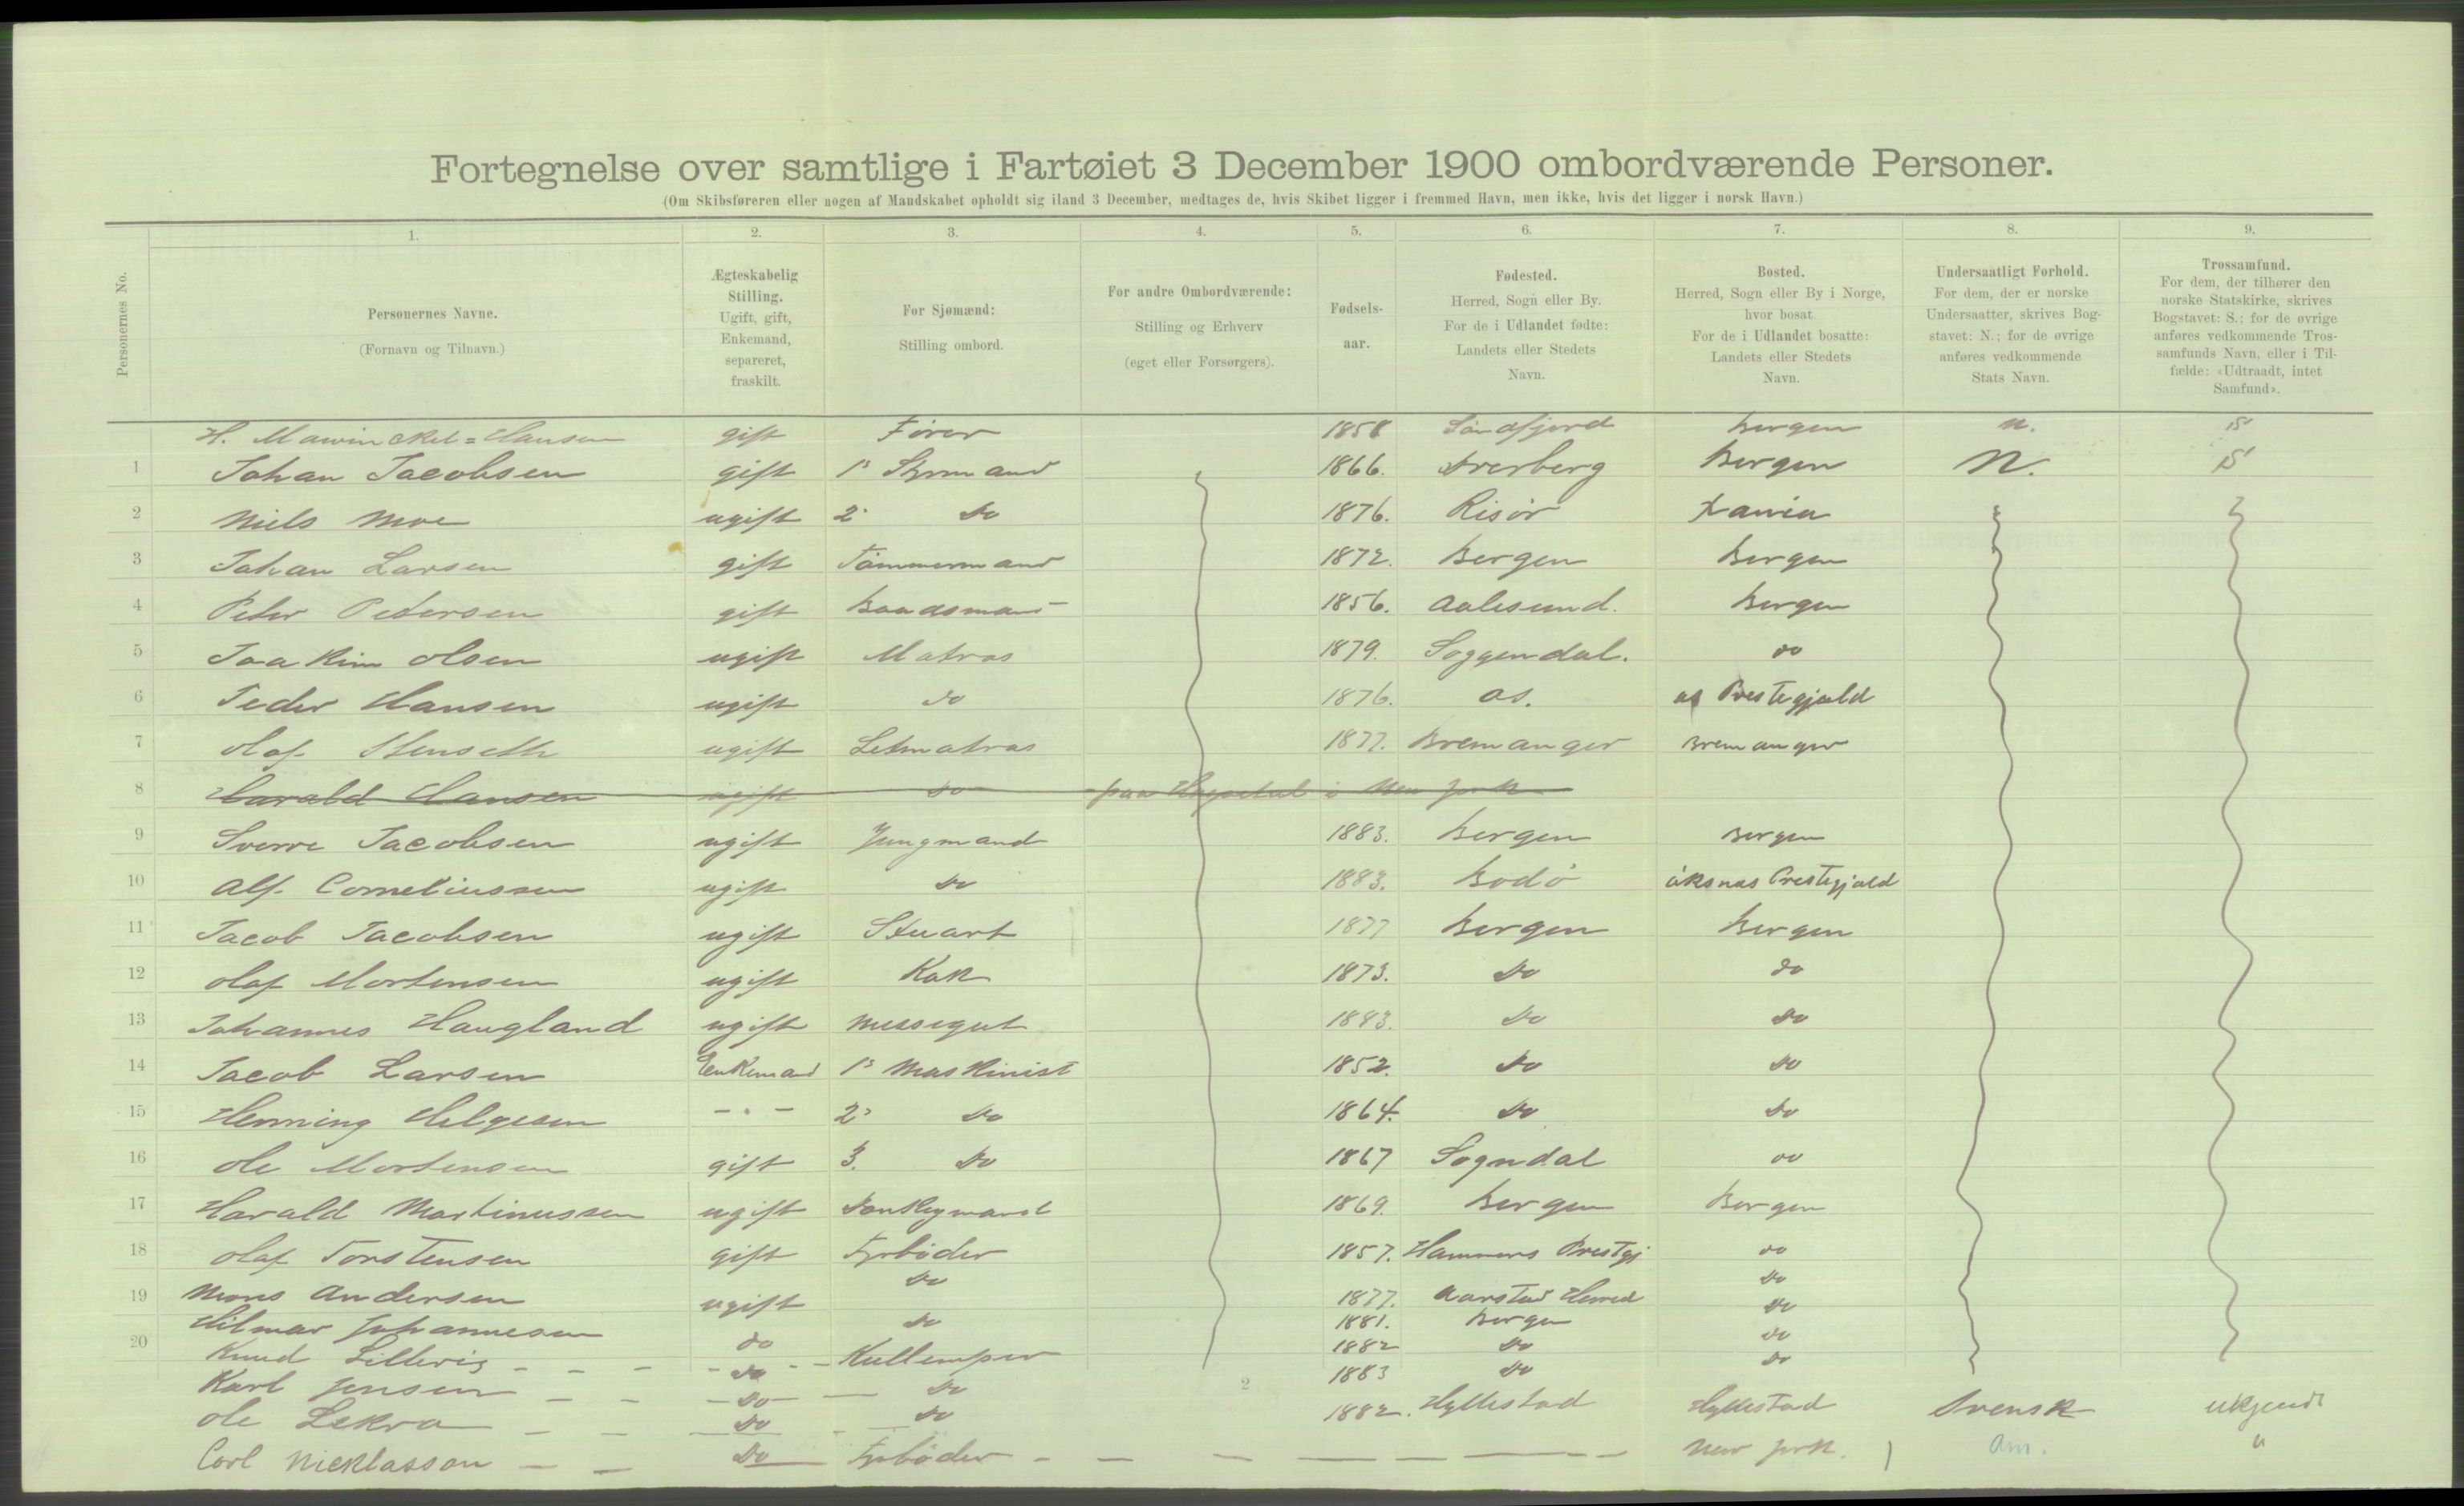 Fortegnelse over samtlige i Fartøiet 3 December 1900 ombordværende Personer.
(Om Skibsføreren eller nogen af Mandskabet opholdt sig iland 3 December, medtages de, hvis Skibet ligger i fremmed Havn, men ikke, hvis det ligger i norsk Havn.)
Personernes No.
1. Personernes Navne. (Fornavn og Tilnavn.)
2. Ægteskabelig Stilling. Ugift, gift, Enkemand, separeret, fraskilt.
3. For Sjømænd: Stilling ombord.
4. For andre Ombordværende: Stilling og Erhverv (eget eller Forsørgers).
5. Fødsels-aar.
6. Fødested. Herred, Sogn eller By. For de i Udlandet fødte: Landets eller Stedets Navn.
7. Bosted. Herred, Sogn eller By i Norge, hvor bosat. For de i Udlandet bosatte: Landets eller Stedets Navn.
8. Undersaatligt Forhold. For dem, der er norske Undersaatter, skrives Bogstavet: N.; for de øvrige anføres vedkommende Stats Navn.
9. Trossamfund. For dem, der tilhører den norske Statskirke, skrives Bogstavet: S.; for de øvrige anføres vedkommende Trossamfunds Navn, eller i Tilfælde: «Udtraadt, intet Samfund».
H. Hansen gift Fører 1858 Søndfjord Bergen n. S
1 Johan Jacobsen gift 1s Styrmand 1866. Bergen N. S
2 Niels Moe ugift 2. Do 1876. Risør Xania
3 Johan Larsen gift Tømmermand 1872. Bergen Bergen
4 Peter Petersen gift Baadsmand 1856. Aalesund. Bergen
5 Joakim Olsen ugift Matros 1879. Soggendal. do
6 Peder Hansen ugift do 1876. as. as Prestegjæld
7 Olaf Stenseth ugift Letmatros 1877. Bremanger Bremanger
8 Harald Hansen ugift do paa Hospital i New York
9 Sverre Jacobsen ugift Jungmand 1883. Bergen Bergen
10 Alf Corneliussen ugift Do 1883. Bodø øksnæs Prestegjæld
11 Jacob Jacobsen ugift Stuart 1877 Bergen Bergen
12 Olaf Mortensen ugift Kok 1873. Do do
13 Johannes Haugland ugift messegut 1883. Do Do
14 Jacob Larsen Enkemand 1s Maskinist 1852. Do Do
15 Henning Helgesen - . - 2s Do 1864. Do Do
16 Ole Mortensen gift 3. Do 1867 Sogndal do
17 Harald Martinussen ugift Donkeymand 1869. Bergen Bergen
18 Olaf Torstensen gift Fyrbøder 1857. Hammers Prestgj do
19 Mons Andersen ugift Do 1877. Aarstad Herred Do
Hilmar Johannesen do Do 1881. Bergen Do
20 Knud Lillevig - - - do - - Kullemper 1882 Do do
Karl Jensen - - - Do - Do 1883 Do Do
Ole Lekva - - Do - Do 1882. Hyllestad Hyllestad Svensk ukjendt
Carl Nicklasson - - Do Fyrbøder - - - - - New York. Am. "
2